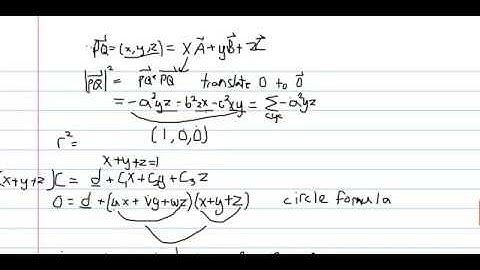 PQ = (x, y, z) = xA + yB + zC
|PQ|² = PQ · PQ translate O to O
= -a²yz - b²zx - c²xy = Σ -a²yz
cyc
(1, 0, 0)
r² =
x+y+z=1
(x+y+z)C = d + C₁x + C₂y + C₃z
0 = d + (ux + vy + wz)(x+y+z) circle formula